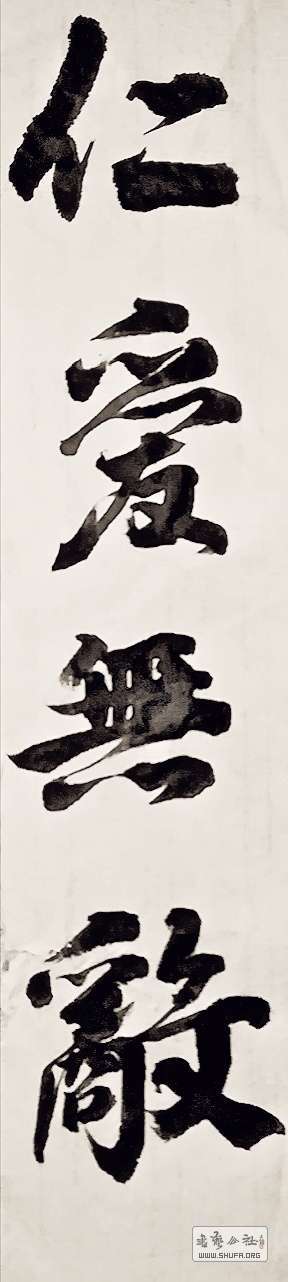 仁愛無敵
书艺公社
WWW.SHUFA.ORG